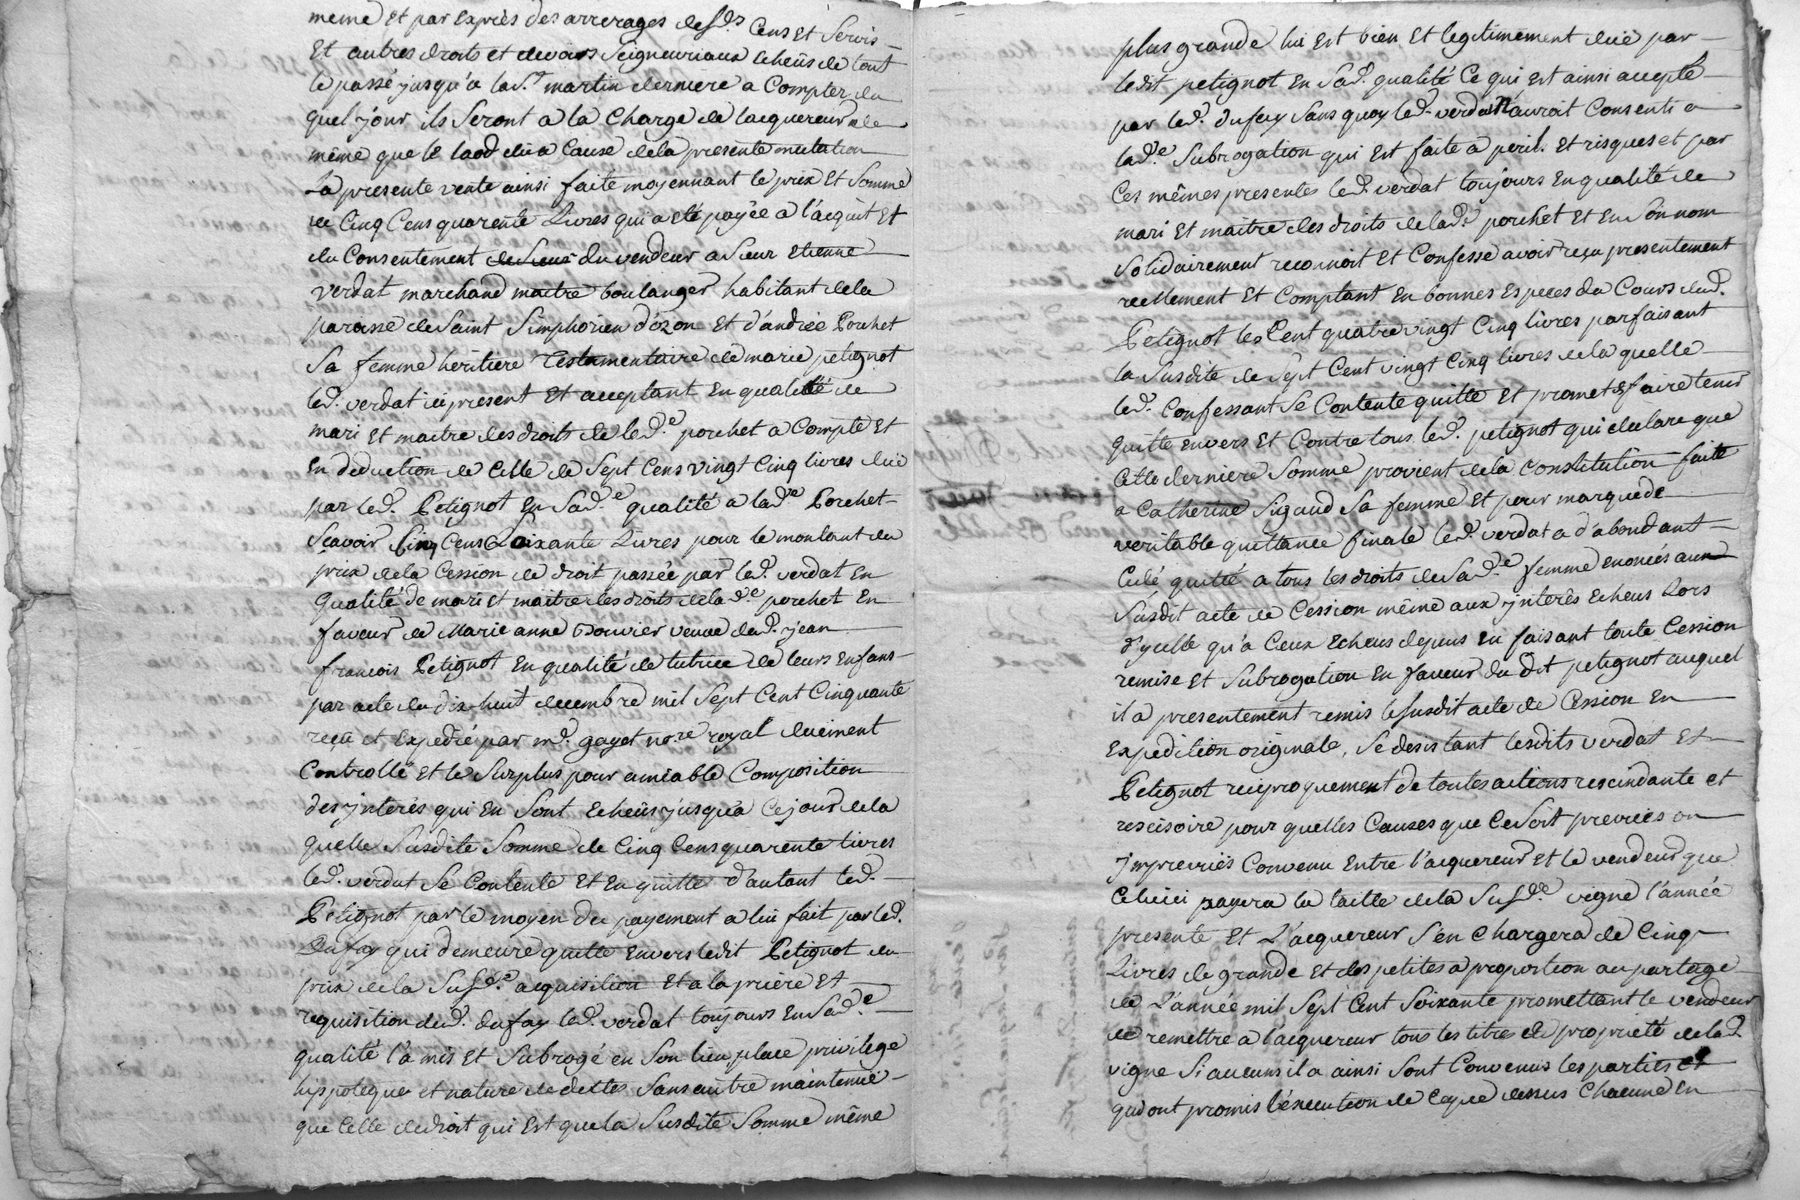 meme et par exprès des arrerages desds Cens et Servis
et autres droits et devoirs Seigneuriaux echeüs de tout
le passé jusqu'a la St martin derniere a Compter du
quel jour ils Seront a la Charge de lacquereur de
même que le laod dû a Cause de la presente mutation
La presente vente ainsi faite moyennant le prix et Somme
de Cinq Cens quarente Livres qui a eté payée a l'acquit et
du Consentement de Sieur du vendeur a Sieur Etienne
Verdat marchand maitre boulanger habitant de la
paroisse de Saint Simphorien d'ozon et d'andrée Porchet
Sa femme héritiere Testamentaire de marie petignot
led. verdat ici present et acceptant en qualité de
mari et maitre des droits de lede porchet a Compte et
en deduction de Celle de Sept Cens vingt Cinq livres düe
par led. Petignot en Sade qualité a lade Porchet
Sçavoir Cinq Cens Soixante Livres pour le montant du
prix de la Cession de droit passée par led. verdat en
qualité de mari et maitre des droits de lade porchet en
faveur de Marie anne Bouvier veuve dud. jean
françois Petignot en qualité de tutrice de leurs enfans
par acte du dix huit decembre mil Sept Cent Cinquante
reçu et expedié par me. gayet nore royal duement
Controllé et le Surplus pour amiable Composition
des jnterês qui en Sont echeüs jusqu'a Cejourd de la
quelle Susdite Somme de Cinq Cens quarente livres
led. verdat Se Contente et en quitte d'autant led.
Petignot par le moyen du payement a lui fait par led.
Dufay qui demeure quitte envers ledit Petignot du
prix de la Susde acquisition et a la prière et
requisition dud. dufay led. verdat toujours en Sade
qualité l'a mis et Subrogé en Son lieu place privilege
hippoteque et nature de dettes Sans autre maintenüe
que Celle de droit qui est que la Susdite Somme même
plus grande lui est bien et legitimement düe par
ledit petignot en Sad. qualité Ce qui est ainsi accepté
par led. dufay Sans quoy led. verdat n'auroit Consenti a
lade Subrogation qui est faite a peril. et risques et par
Ces mêmes presentes led. verdat toujours en qualité de
mari et maitre des droits de lade porchet et en Son nom
Solidairement reconnoit et Confesse avoir reçu presentement
reellement et Comptant en bonnes especes du Cours dud.
Petignot les Cent quatrevingt Cinq livres parfaisant
la Susdite de Sept Cent vingt Cinq livres de la quelle
led. Confessant Se Contente quitte et promet faire tenir
quitte envers et Contre tous led. petignot qui declare que
Cette derniere Somme provient de la Constitution faite
a Catherine Sigaud Sa femme et pour marque de
veritable quittance finale led. verdat a d'abondant
Cedé quitté a tous les droits de Sade femme enoncés aux
Susdit acte de Cession même aux jnterês echeus Lors
d'ycelle qu'a Ceux echeus depuis en faisant toute Cession
remise et Subrogation en faveur du Dit petignot auquel
il a presentement remis le Susdit acte de Cession en
Expedition originale, Se desistant lesdits verdat et
Petignot reciproquement de toutes actions rescindante et
rescisoire pour quelles Causes que Ce Soit prevües ou
jmprevües Convenu entre l'acquereur et le vendeur que
Celuici payera la taille de la Susde vigne l'année
presente et L'acquereur S'en Chargera de Cinq
Livres de grande et des petites a proportion au partage
de L'année mil Sept Cent Soixante promettant le vendeur
de remettre a l'acquereur tous les titres de proprieté de lad.
vigne Si aucuns il a ainsi Sont Convenus les parties et
qui ont promis l'éxécution de Ceque dessus Chacune en